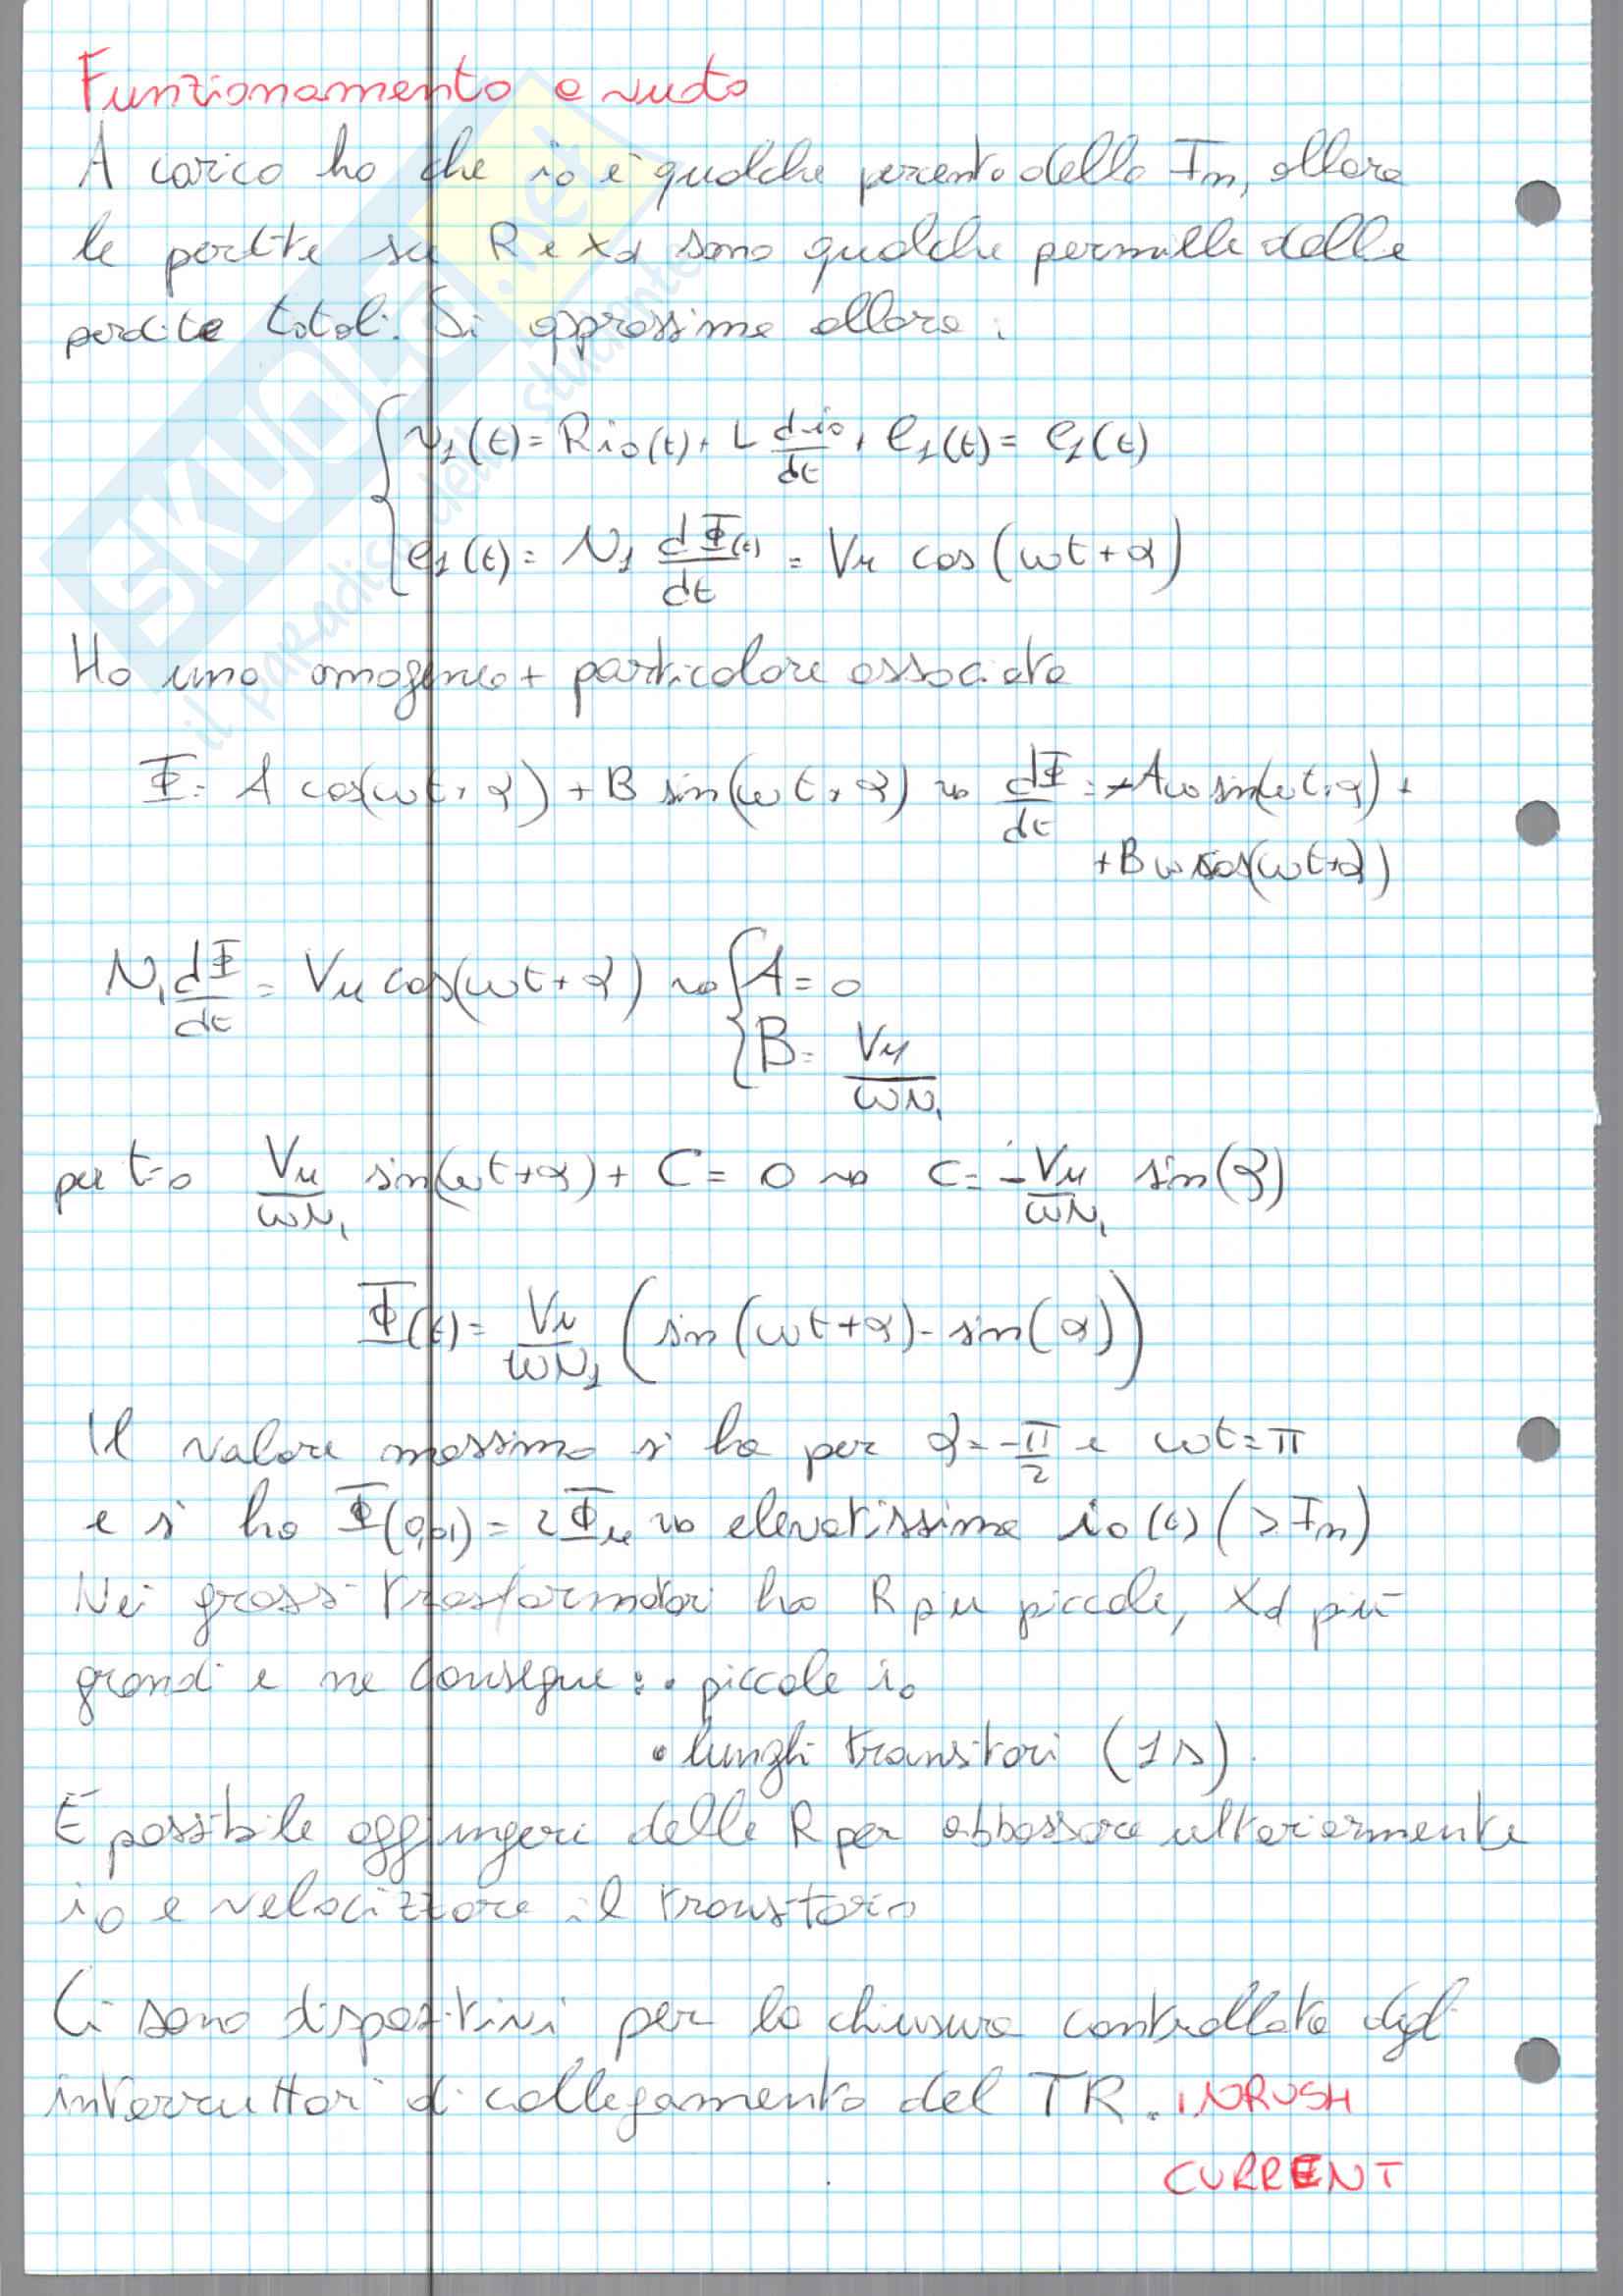 Funzionamento a vuoto
A carico ho che i₀ è qualche percento della Iₙ, allora
le perdite su R e Xd sono qualche permille delle
perdite totali. Si approssima allora:
v₁(t) = R i₀(t) + L di₀/dt + e₁(t) = e₁(t)
e₁(t) = N₁ dΦ(t)/dt = V_M cos(ωt + α)
Ho una omogenea + particolare associata
Φ = A cos(ωt + α) + B sin(ωt + α) ⇝ dΦ/dt = -Aω sin(ωt + α) +
+Bω cos(ωt+α)
N₁ dΦ/dt = V_M cos(ωt + α) ⇝ { A = 0
B = V_M/ωN₁
per t=0 V_M/ωN₁ sin(ωt+α) + C = 0 ⇝ C = -V_M/ωN₁ sin(α)
Φ(t) = V_M/ωN₁ (sin(ωt+α) - sin(α))
Il valore massimo si ha per α = -π/2 e ωt = π
e si ha Φ(0,01) = 2Φ_M ⇝ elevatissima i₀(t) (> Iₙ)
Nei grossi trasformatori ho R più piccole, Xd più
grandi e ne consegue: • piccole i₀
• lunghi transitori (1s).
È possibile aggiungere delle R per abbassare ulteriormente
i₀ e velocizzare il transitorio
Ci sono dispositivi per la chiusura controllata degli
interruttori di collegamento del TR. INRUSH
CURRENT
SKUOLA.net
il paradiso dello studente